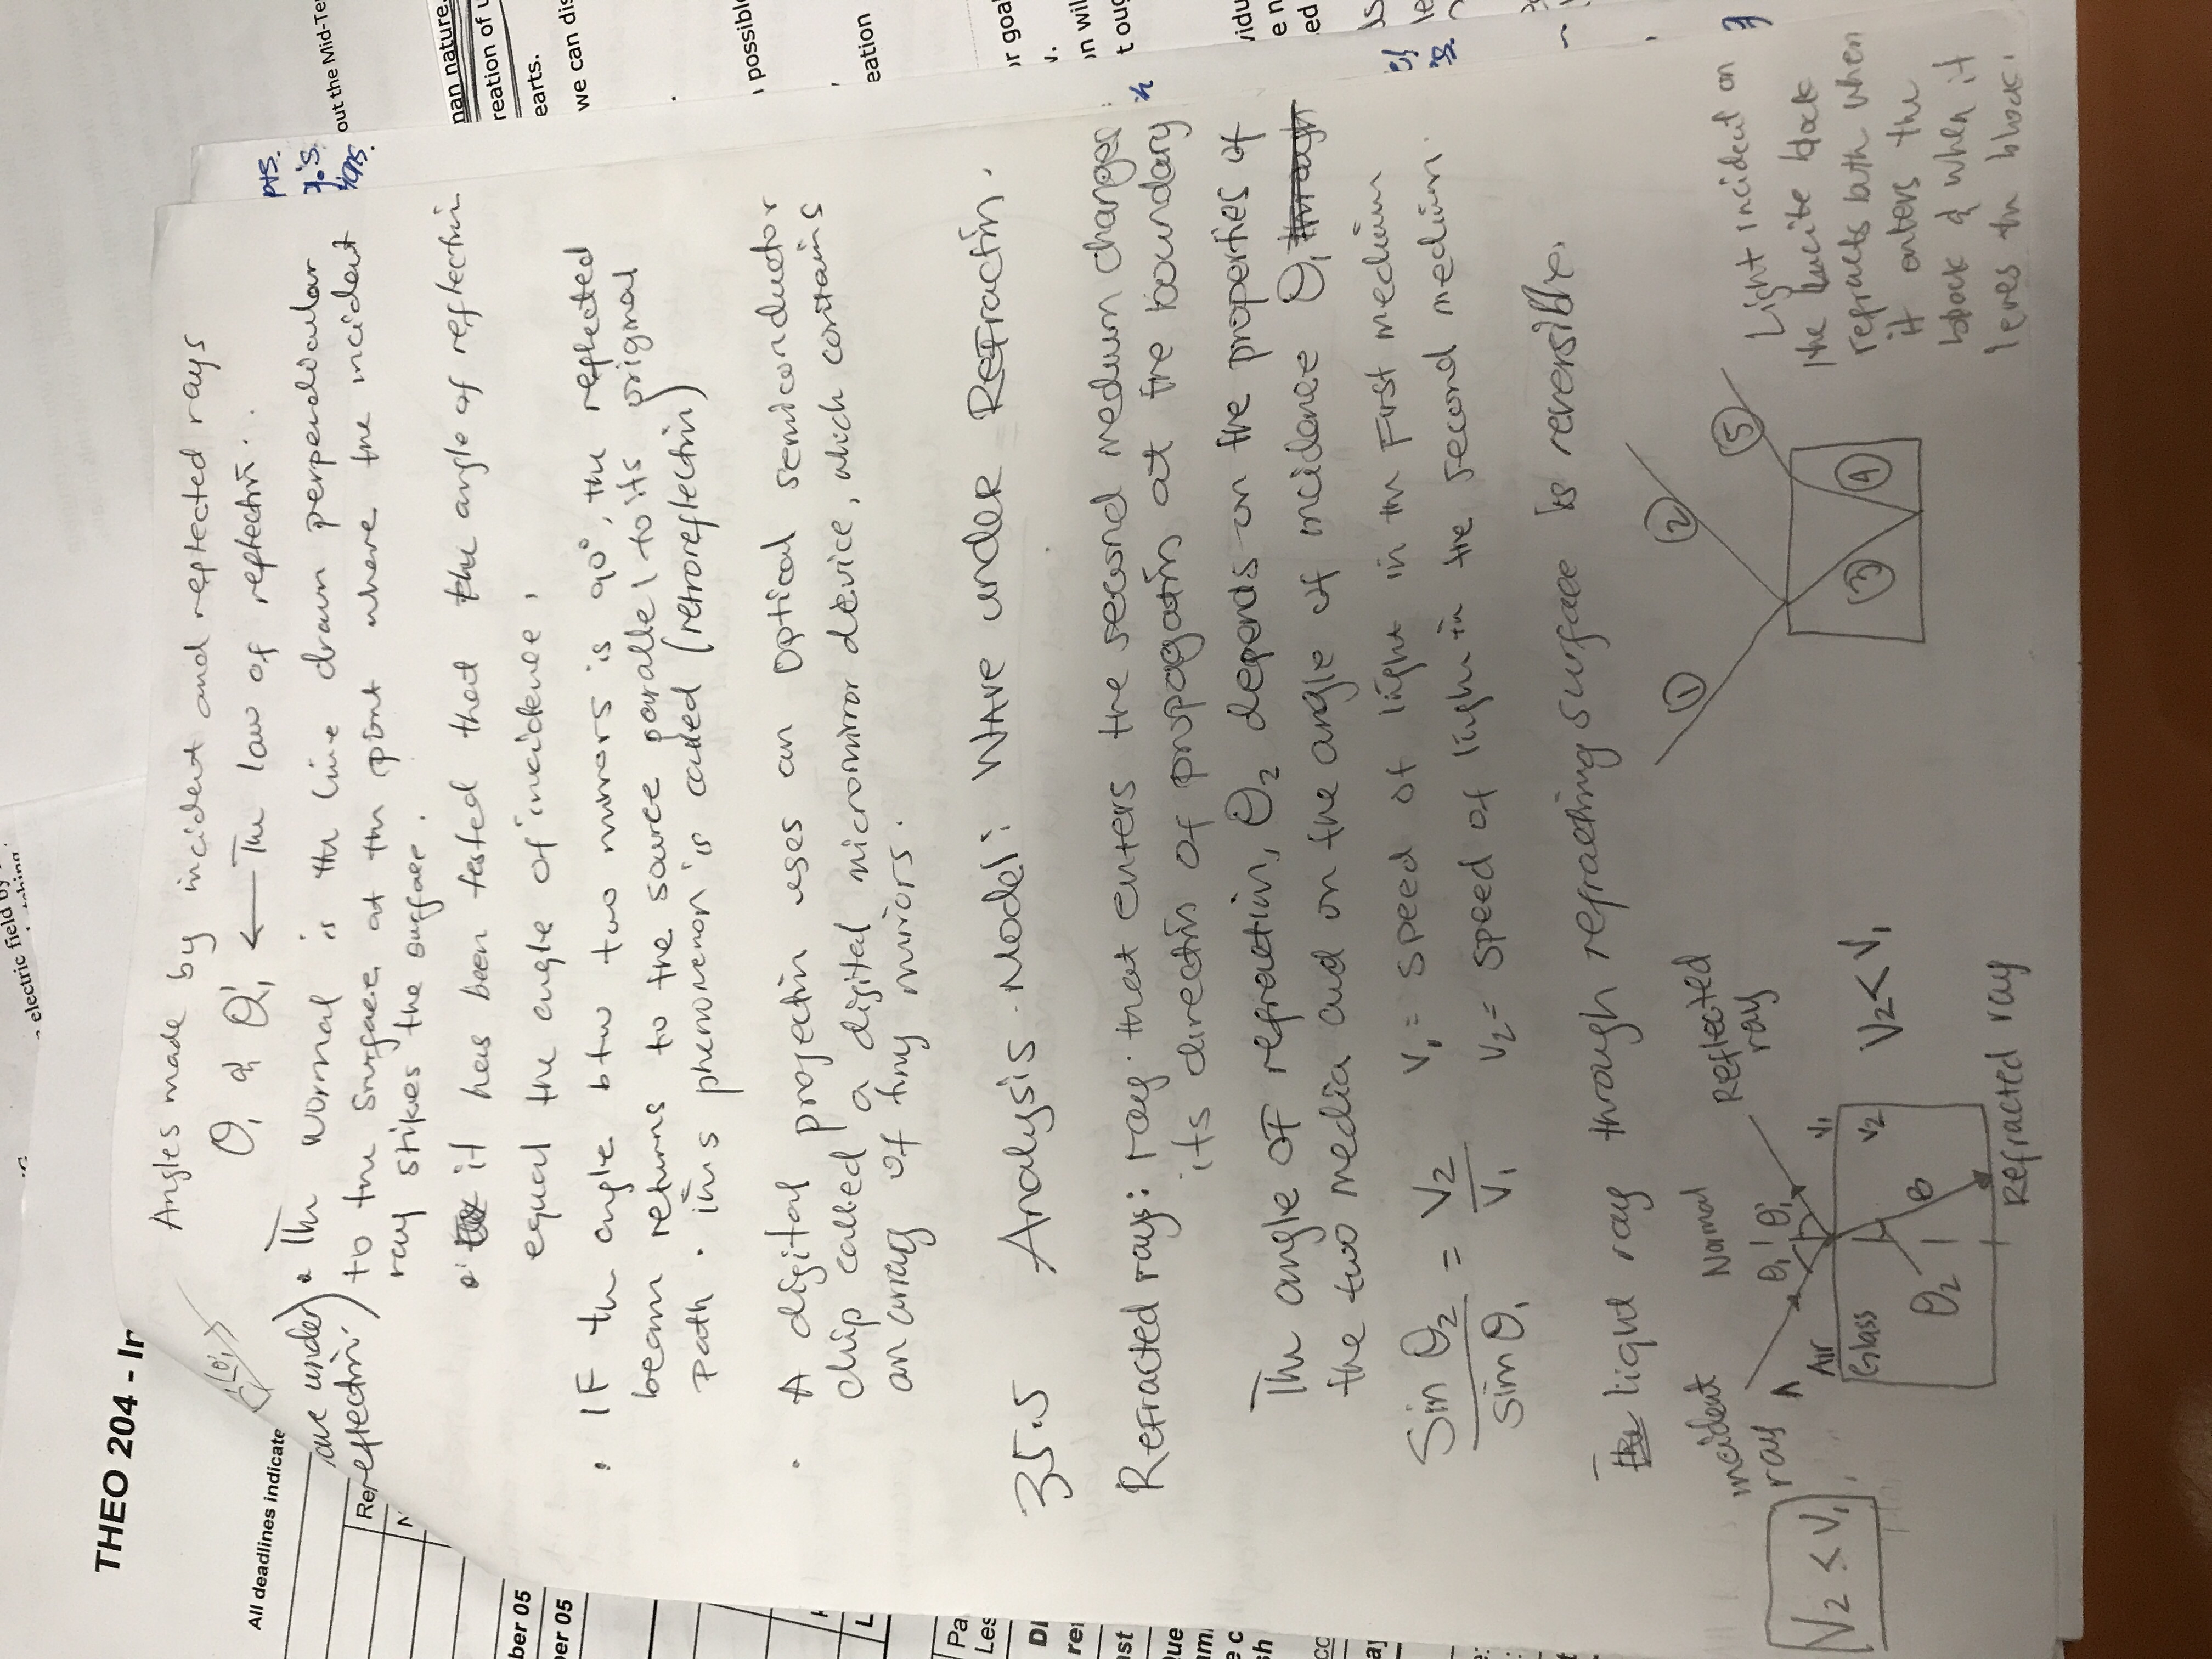 THEO 204 - In
All deadlines indicate
Angles made by incident and reflected rays
θ₁ & θ₁' ← The law of reflectin.
• The normal is the line drawn perpendicular
to the surface at the point where the incident
ray stikes the surface.
it has been tested that the angle of reflectin
equal the angle of incidence,
• IF the angle btw two mirrors is 90°, the reflected
beam returns to the source parallel to its original
path. this phenomenon is called (retroreflectin)
• A digital projectin uses an optical semiconductor
chip called a digital micromirror device, which contains
an array of tiny mirrors.
35.5 Analysis Model: Wave under Refractin.
Refracted ray: ray that enters the second medium changes
its directin of propagatin at the boundary
The angle of refractin, θ₂ depends on the properties of
the two media and on the angle of incidence θ₁ through
Sin θ₂ / Sin θ₁ = V₂ / V₁
V₁ = speed of light in the First medium
V₂ = speed of light in the second medium.
The light ray through refracting surface is reversible.
incident ray
Normal
Reflected ray
A
θ₁ θ₁'
Air
V₁
Glass
V₂
θ₂
B
V₂ < V₁
Refracted ray
V₂ < V₁
1
2
3
4
5
Light incident on
the lucite block
refracts both when
it enters the
block & when it
leves the block.
out the Mid-Te
nan nature.
reation of u
earts.
we can dis
possible
eation
r goa
n wil
t oug
pts.
electric field by
ber 05
er 05
Pa
Les